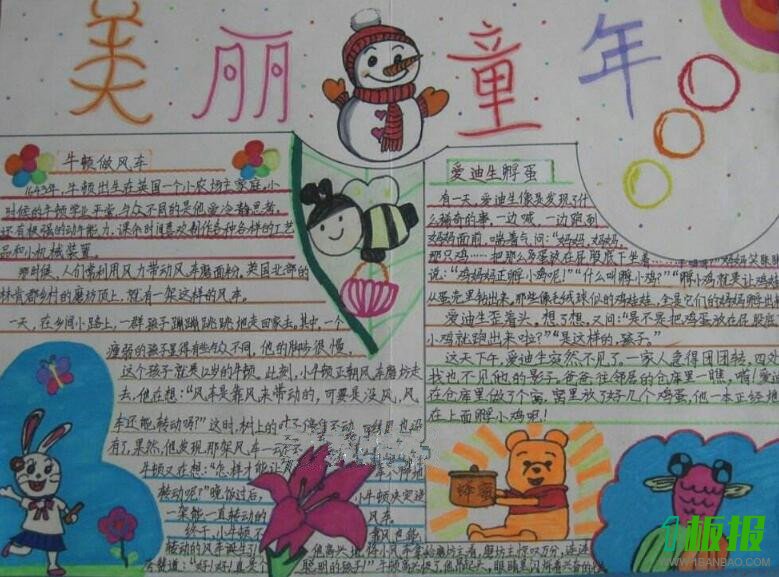 美丽童年
牛顿做风车
1643年,牛顿出生在英国一个小农场主家庭。小
时候的牛顿学业平平,与众不同的是他爱冷静思考,
还有极强的动手能力,课余时间喜欢制作各种各样的工艺
品和小机械装置。
那时候,人们常利用风力带动风车磨面粉,英国北部的
林肯郡乡村的磨坊顶上,就有一架这样的风车。
一天,在乡间小路上,一群孩子蹦蹦跳跳地走回家去。其中,一个
瘦弱的孩子显得有些与众不同,他的脚步很慢。
这个孩子就是12岁的牛顿。此刻,小牛顿正朝风车磨坊走
去,他在想:“风车是靠风来带动的,可要是没风,风
车还能转动吗?”这时,树上的叶子停住不动
有了,果然,他发现那架风车一动
牛顿又在想:“怎样才能让
转动呢?”晚饭过后,小牛顿决定
一架能一直转动的风车。
终于,小牛顿不靠风也能
转动的风车诞生
夸赞道:“好!好!真是个聪明的孩子!”
爱迪生孵蛋
有一天,爱迪生像是发现了什
么稀奇的事,一边喊,一边跑到
妈妈面前,喘着气问:“妈妈,妈妈,
那只鸡……把那么多蛋放在屁股底下坐着……
说:“鸡妈妈正孵小鸡呢!”“什么叫孵小鸡?”“孵小鸡就是让鸡娃娃
从蛋壳里钻出来,那些像毛线球似的鸡娃娃,全是它们的妈妈孵出
爱迪生歪着头,想了想,又问:“是不是把鸡蛋放在屁股底下
小鸡就跑出来啦?”“是这样的,孩子。”
这天下午,爱迪生突然不见了。一家人急得团团转,四处
找也不见他的影子。爸爸往邻居的仓库里一瞧,嗬!爱迪
在仓库里做了个窝,窝里放了好几个鸡蛋,他一本正经地
在上面孵小鸡呢!
蜂蜜
板报
WWW.1BANBAO.COM